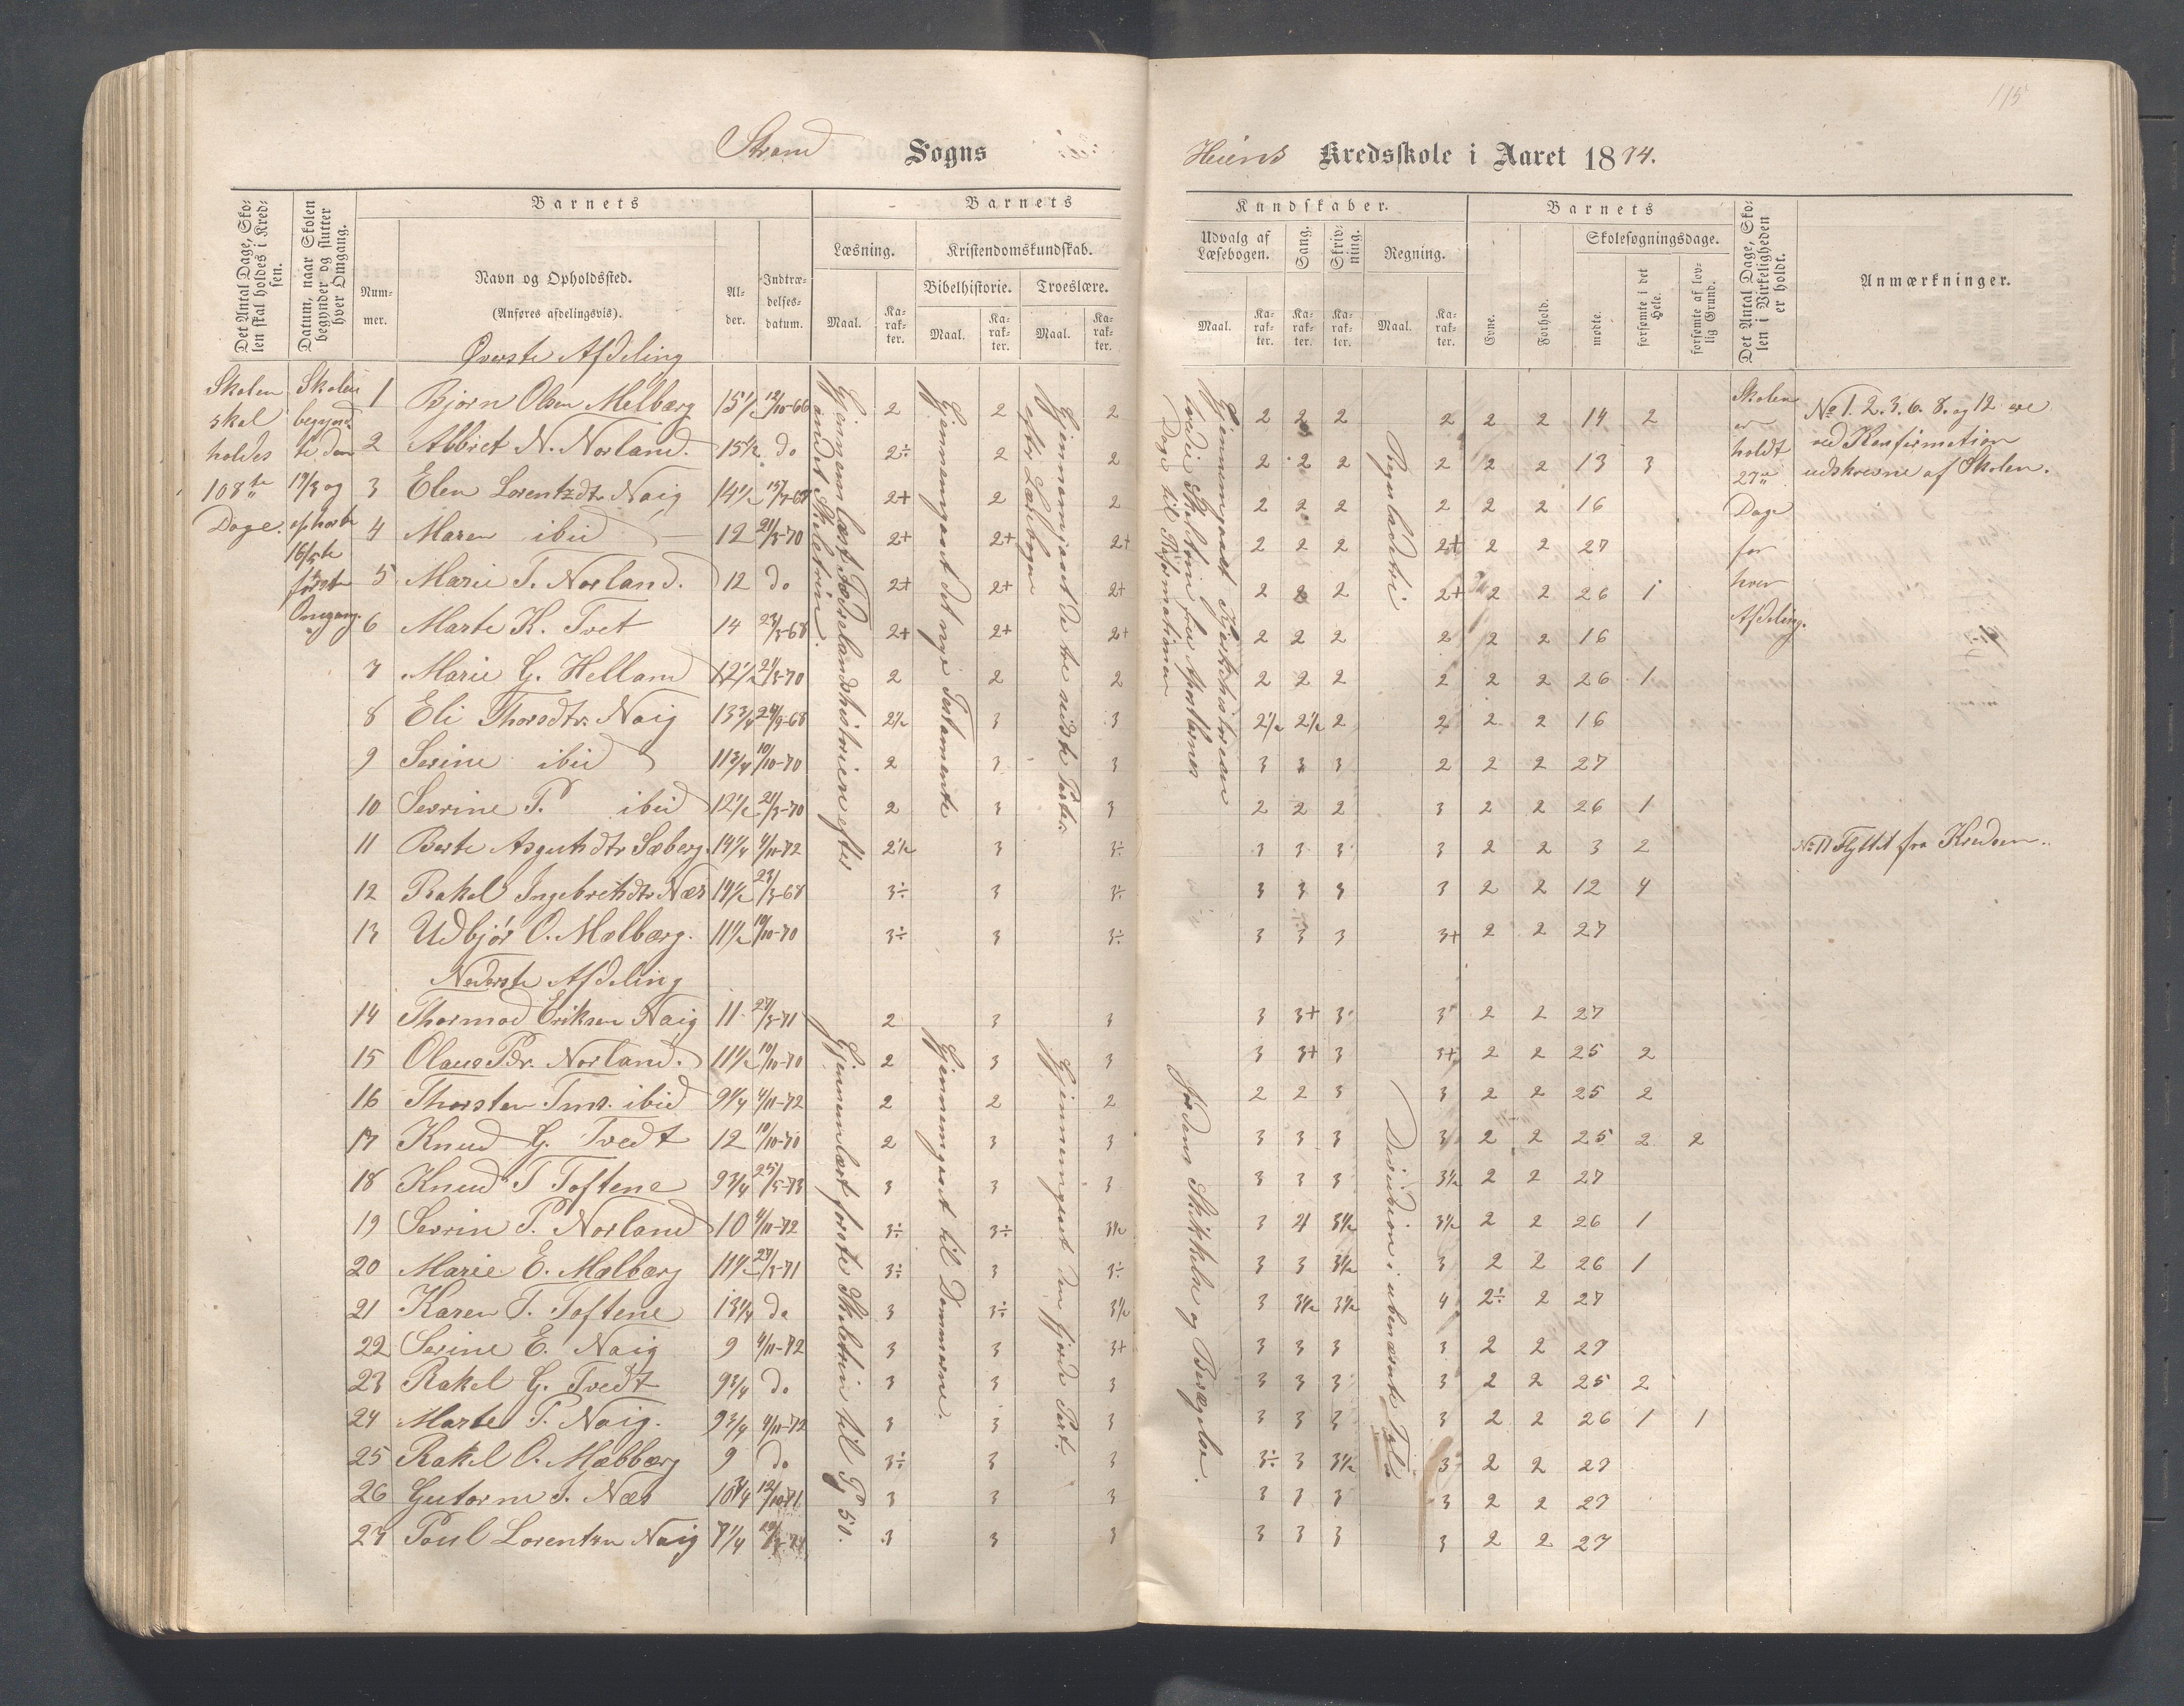 115
Strand Sogns
Heiens Kredsskole i Aaret 1874.
Det Antal Dage, Skolen skal holdes i Kredsen.
Datum, naar Skolen begynder og slutter hver Omgang.
Barnets
Nummer.
Navn og Opholdssted.
(Anføres afdelingsvis).
Alder.
Indtrædelsesdatum.
Barnets
Læsning.
Kristendomskundskab.
Bibelhistorie.
Troeslære.
Maal.
Karakter.
Maal.
Karakter.
Maal.
Karakter.
Kundskaber.
Udvalg af Læsebogen.
Sang.
Skrivning.
Regning.
Maal.
Karakter.
Karakter.
Karakter.
Maal.
Karakter.
Barnets
Evne.
Forhold.
Skolesøgningsdage.
mødte.
forsømte i det Hele.
forsømte af lovlig Grund.
Det Antal Dage, Skolen i Virkeligheden er holdt.
Anmærkninger.
Skolen
skal
holdes
108te
Dage.
Skolen
begynd-
te den
19/3 og
ophørte
16/5 te
første
Omgang.
Øverste Afdeling
1 Bjørn Olsen Melbærg 15 1/2 12/10-66 2 2 2 2 2 2 2 2 2 14 2
2 Abbret N. Norland. 15 1/2 do 2÷ 2 2 2 2 2 2 2 2 13 3
3 Elen Lorentzdtr Naig 14 1/2 15/7-68 2+ 2 2 2 2 2 2 2 2 16
4 Maren ibid 12 21/3-70 2+ 2+ 2+ 2 2 2 2+ 2 2 27
5 Marie T. Norland. 12 do 2+ 2+ 2+ 2 2 2 2+ 2 2 26 1
6 Marte K. Tvet 14 23/3-68 2+ 2+ 2+ 2 2 2 2 2 2 16
7 Marie G. Helland 12 1/2 21/3-70 2 2 2 2 2 2 2 2 2 26 1
8 Eli Thorsdtr. Naig 13 3/4 24/9-68 2 1/2 3 3 2 1/2 2 1/2 2 2 2 2 16
9 Serine ibid 11 3/4 10/10-70 2 3 3 3 3 3 2 2 2 27
10 Sevrine P. ibid 12 1/2 21/3-70 2 3 3 2 2 2 3 2 2 26 1
11 Berte Asgutsdtr Sæberg. 14 1/4 4/11-72 2 1/2 3 3÷ 3 3 3 3 2 2 3 2
12 Rakel Ingebretsdtr Næs 14 1/2 23/3-68 3÷ 3 3÷ 3 3 3 3 2 2 12 4
13 Udbjør O. Mælbærg. 11 1/2 10/10-70 3÷ 3 3÷ 3 3 3 3+ 2 2 27
Nederste Afdeling
14 Thormod Eriksen Naig 11 27/3-71 2 3 3 3 3+ 3 3 2 2 27
15 Olaus Pdr. Norland. 11 1/2 10/10-70 2 3 3 3 3+ 3 3+ 2 2 25 2
16 Thorsten Tms. ibid 9 1/4 4/11-72 2 2 2 2 2 3 3 2 2 25 2
17 Knud G. Tvedt 12 10/10-70 2 3 3 3 3 3 3 2 2 25 2 2
18 Knud T Toftene 9 3/4 25/5-73 3 3 3 3 3 3 3 1/2 2 2 27
19 Sevrin P. Norland 10 4/11-72 3÷ 3÷ 3 1/2 3 4 3 1/2 3 1/2 2 2 26 1
20 Marie E. Mælbærg 11 1/2 27/3-71 3÷ 3 3÷ 3 3 3 1/2 3 2 2 26 1
21 Karen T. Toftene 13 1/4 do 3 3÷ 3 1/2 3 3 1/2 3 1/2 4 2÷ 2 27
22 Serine E. Naig 9 4/11-72 3 3 3+ 3 3 3 3 2 2 27
23 Rakel G. Tvedt 9 3/4 do 3 3 3 3 3 3 3 2 2 25 2
24 Marte P. Naig. 9 3/4 4/11-72 3 3 3 3 3 3 3 2 2 26 1 1
25 Rakel O. Mælbærg 9 do 3÷ 3 3 3÷ 3 3 1/2 3 2 2 27
26 Gutorm T. Næs 10 3/4 12/10-71 3 3 3 3 3 3 3 2 2 27
27 Poul Lorentzen Naig 7 1/4 3 3 3 3 3 3 3 2 2 27
Gjennemlæst Fædrelandshistorien efter
andet Skoletrin.
Gjennemgaaet det nye Testamente
Gjennemgaaet de tre sidste Parter
efter Læsebogen
Gjennemgaaet Kirkehistorien
tredie Skoletrin fra Apostlernes
Dage til Reformationen
Reguladetri
Gjennemlæst første Skoletrin til P 50.
Gjennemgaaet til Dommerne.
Gjennemgaaet den fjerde Part.
Jordens Skikkelse og Bevægelse.
Division i ubenævnte Tal
Skolen
er
holdt
27
Dage
for
hver
Afdeling.
No 1. 2. 3. 6. 8. og 12 ere
ved Konfirmation
udskrevne af Skolen.
No 11 Flyttet fra Kredsen.